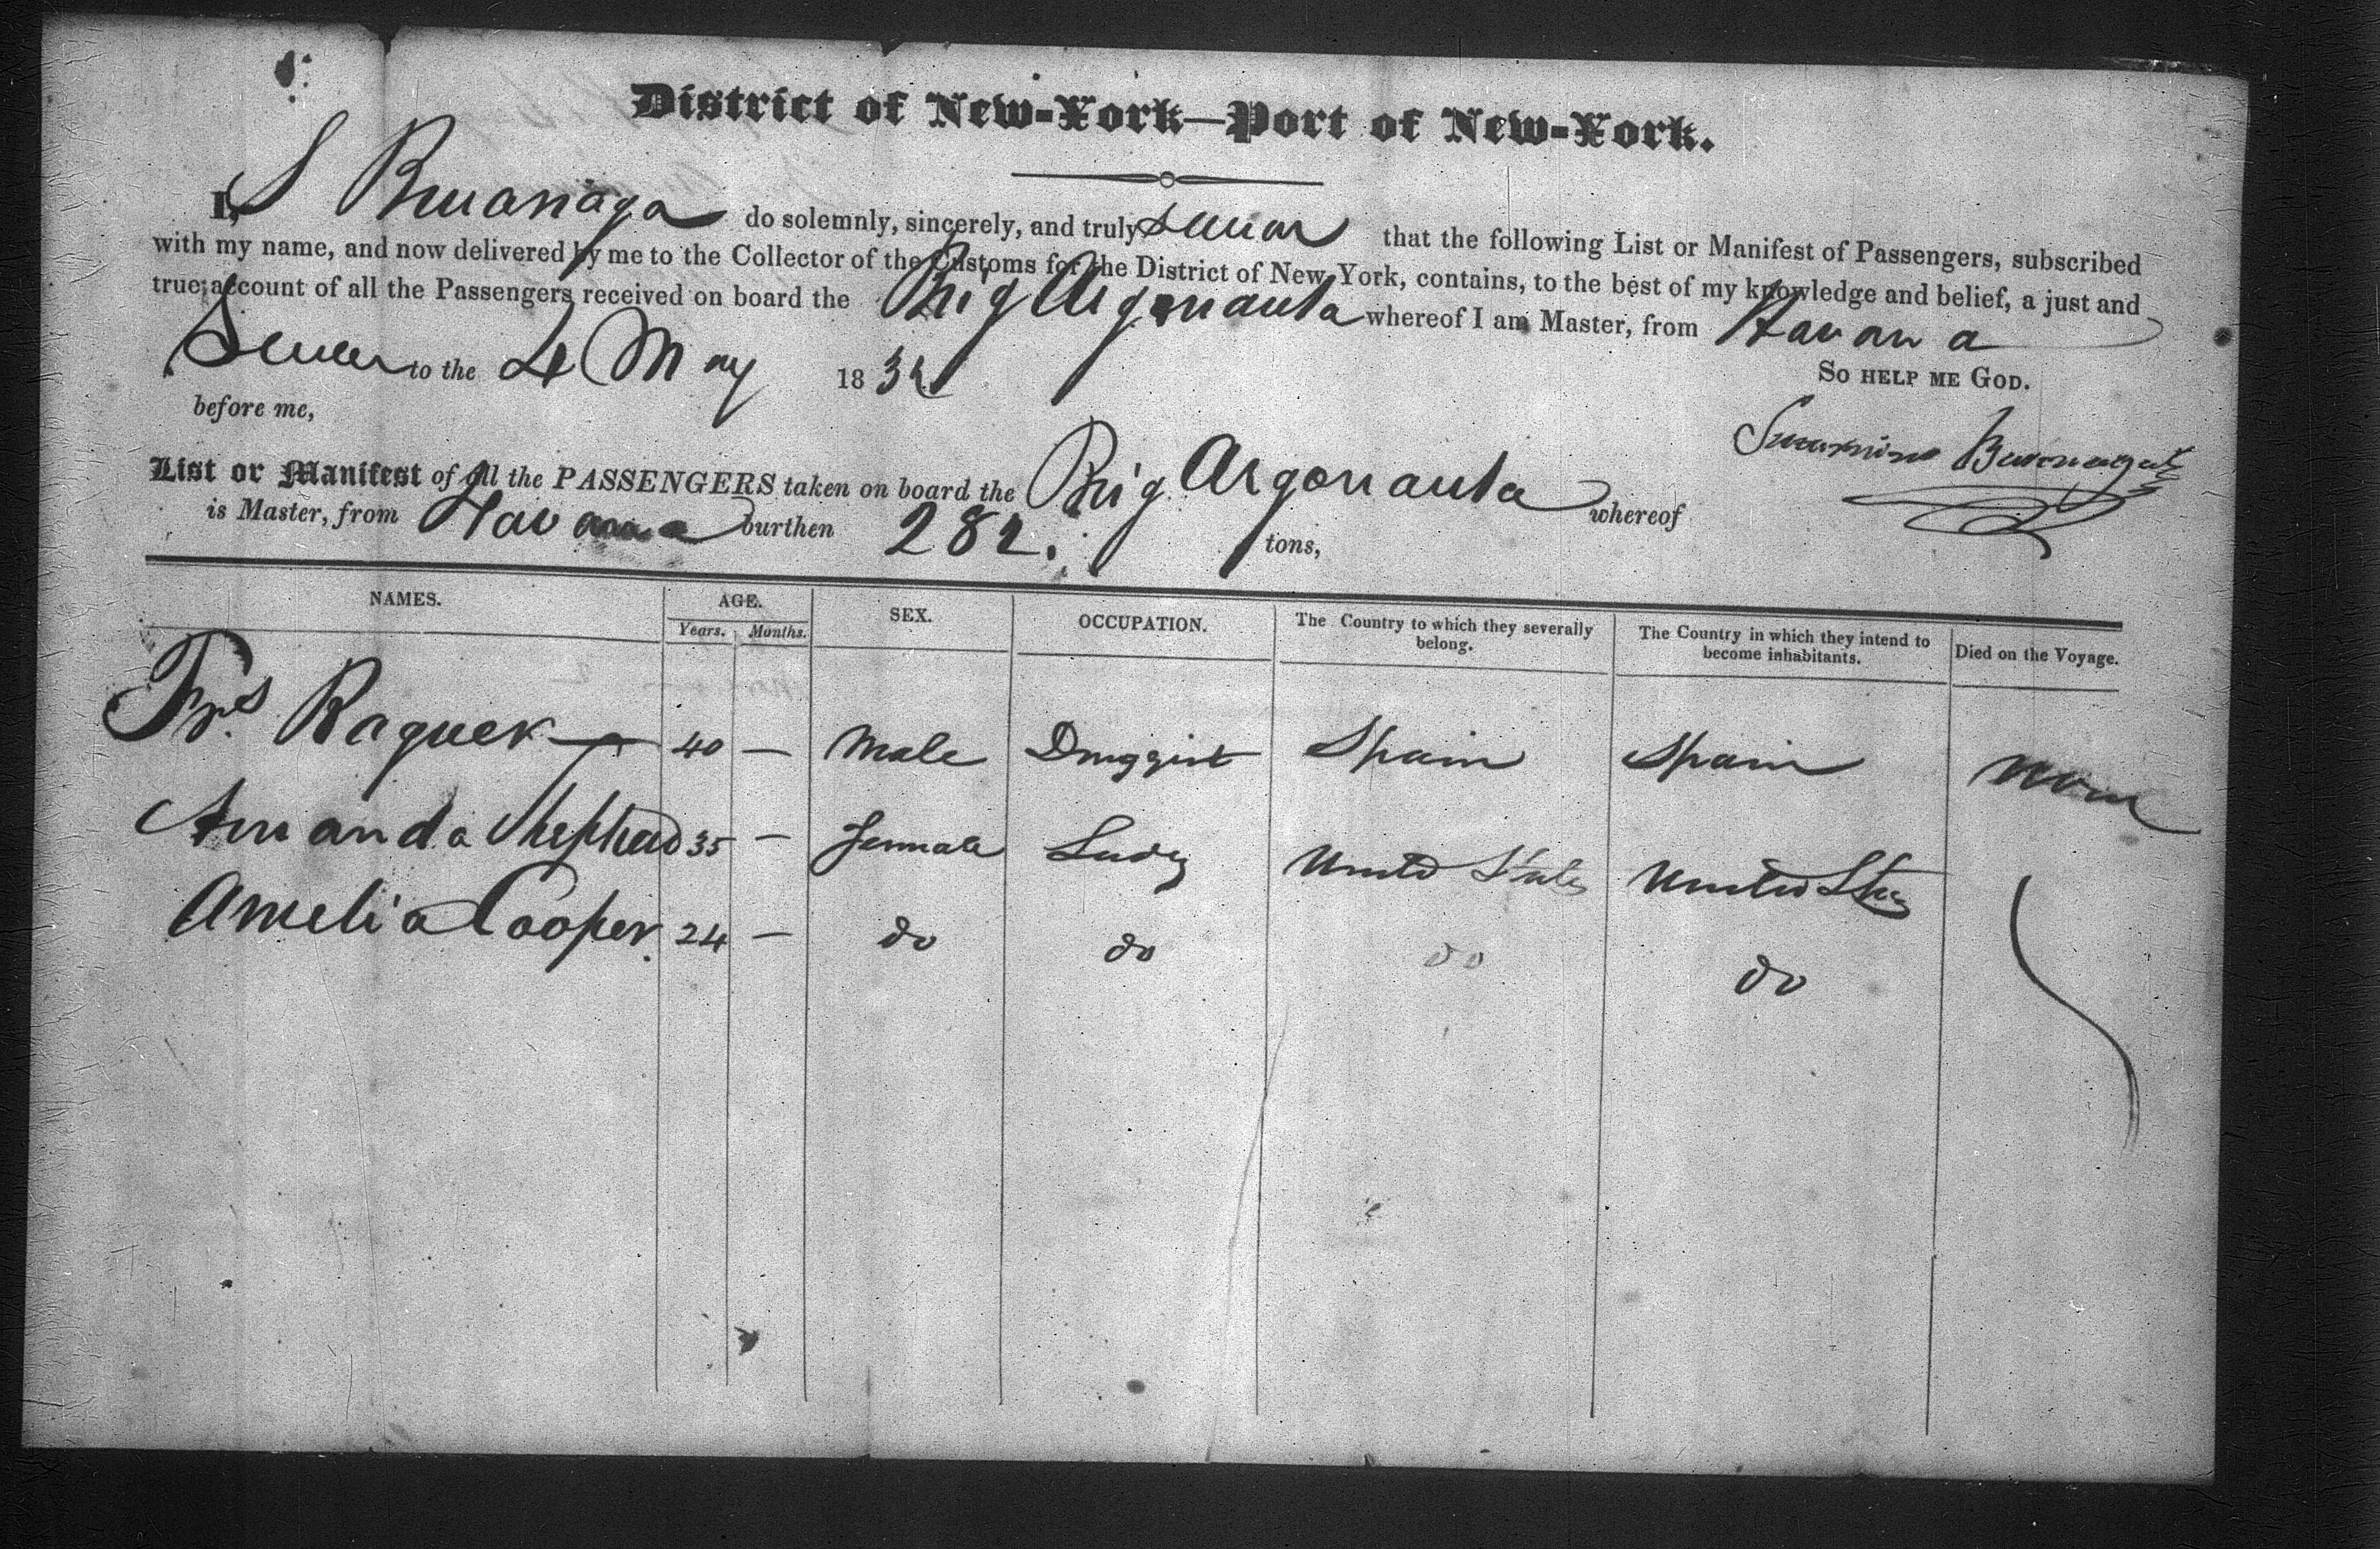 District of New-York—Port of New-York.
I, S do solemnly, sincerely, and truly swear that the following List or Manifest of Passengers, subscribed
with my name, and now delivered by me to the Collector of the Customs for the District of New York, contains, to the best of my knowledge and belief, a just and
true account of all the Passengers received on board the Brig Argonauta whereof I am Master, from Havana
to the 4 May 1832
So help me God.
before me,
List or Manifest of all the PASSENGERS taken on board the Brig Argonauta whereof
is Master, from Havana burthen 282. tons,
NAMES. AGE. SEX. OCCUPATION. The Country to which they severally belong. The Country in which they intend to become inhabitants. Died on the Voyage.
Years. Months.
Frs. Raguer 40 — Male Druggist Spain Spain None
Amanda Shephead 35 — female Lady United States United Stes
Amelia Cooper. 24 — do do do do